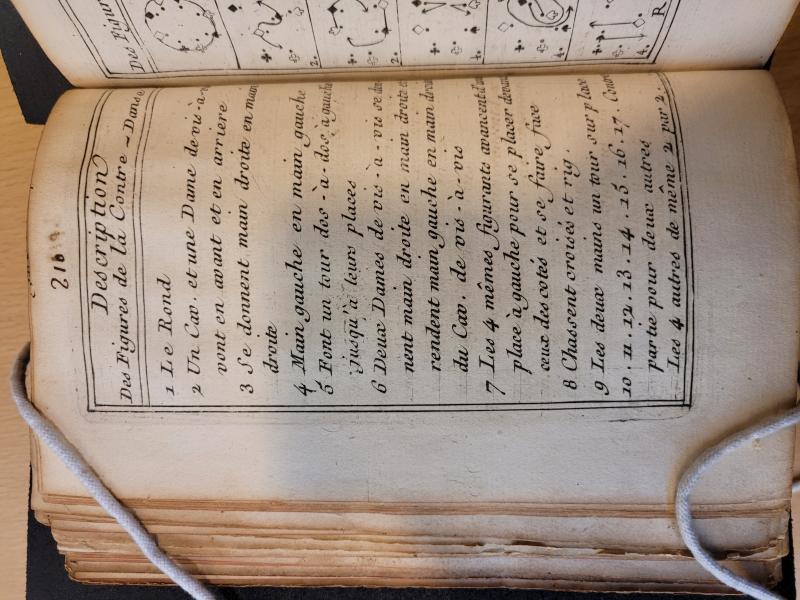 216
Description
Des Figures de la Contre-Danse
1 Le Rond
2 Un Cav. et une Dame de vis-à-vis
vont en avant et en arriere
3 Se donnent main droite en main
droite
4 Main gauche en main gauche
5 Font un tour dos-à-dos à gauche
jusqu'à leurs places
6 Deux Dames de vis-à-vis se don
nent main droite en main droite et
rendent main gauche en main droite
du Cav. de vis-à-vis
7 Les 4 mêmes figurants avancent d'une
place à gauche pour se placer devant
ceux des cotés et se faire face
8 Chassent croisés et rig.
9 Les deux mains un tour sur place
10.11.12.13.14.15.16.17. Contre
partie pour deux autres
Les 4 autres de même 2 par 2.
Des Figur
2.
2.
4.
4.
R